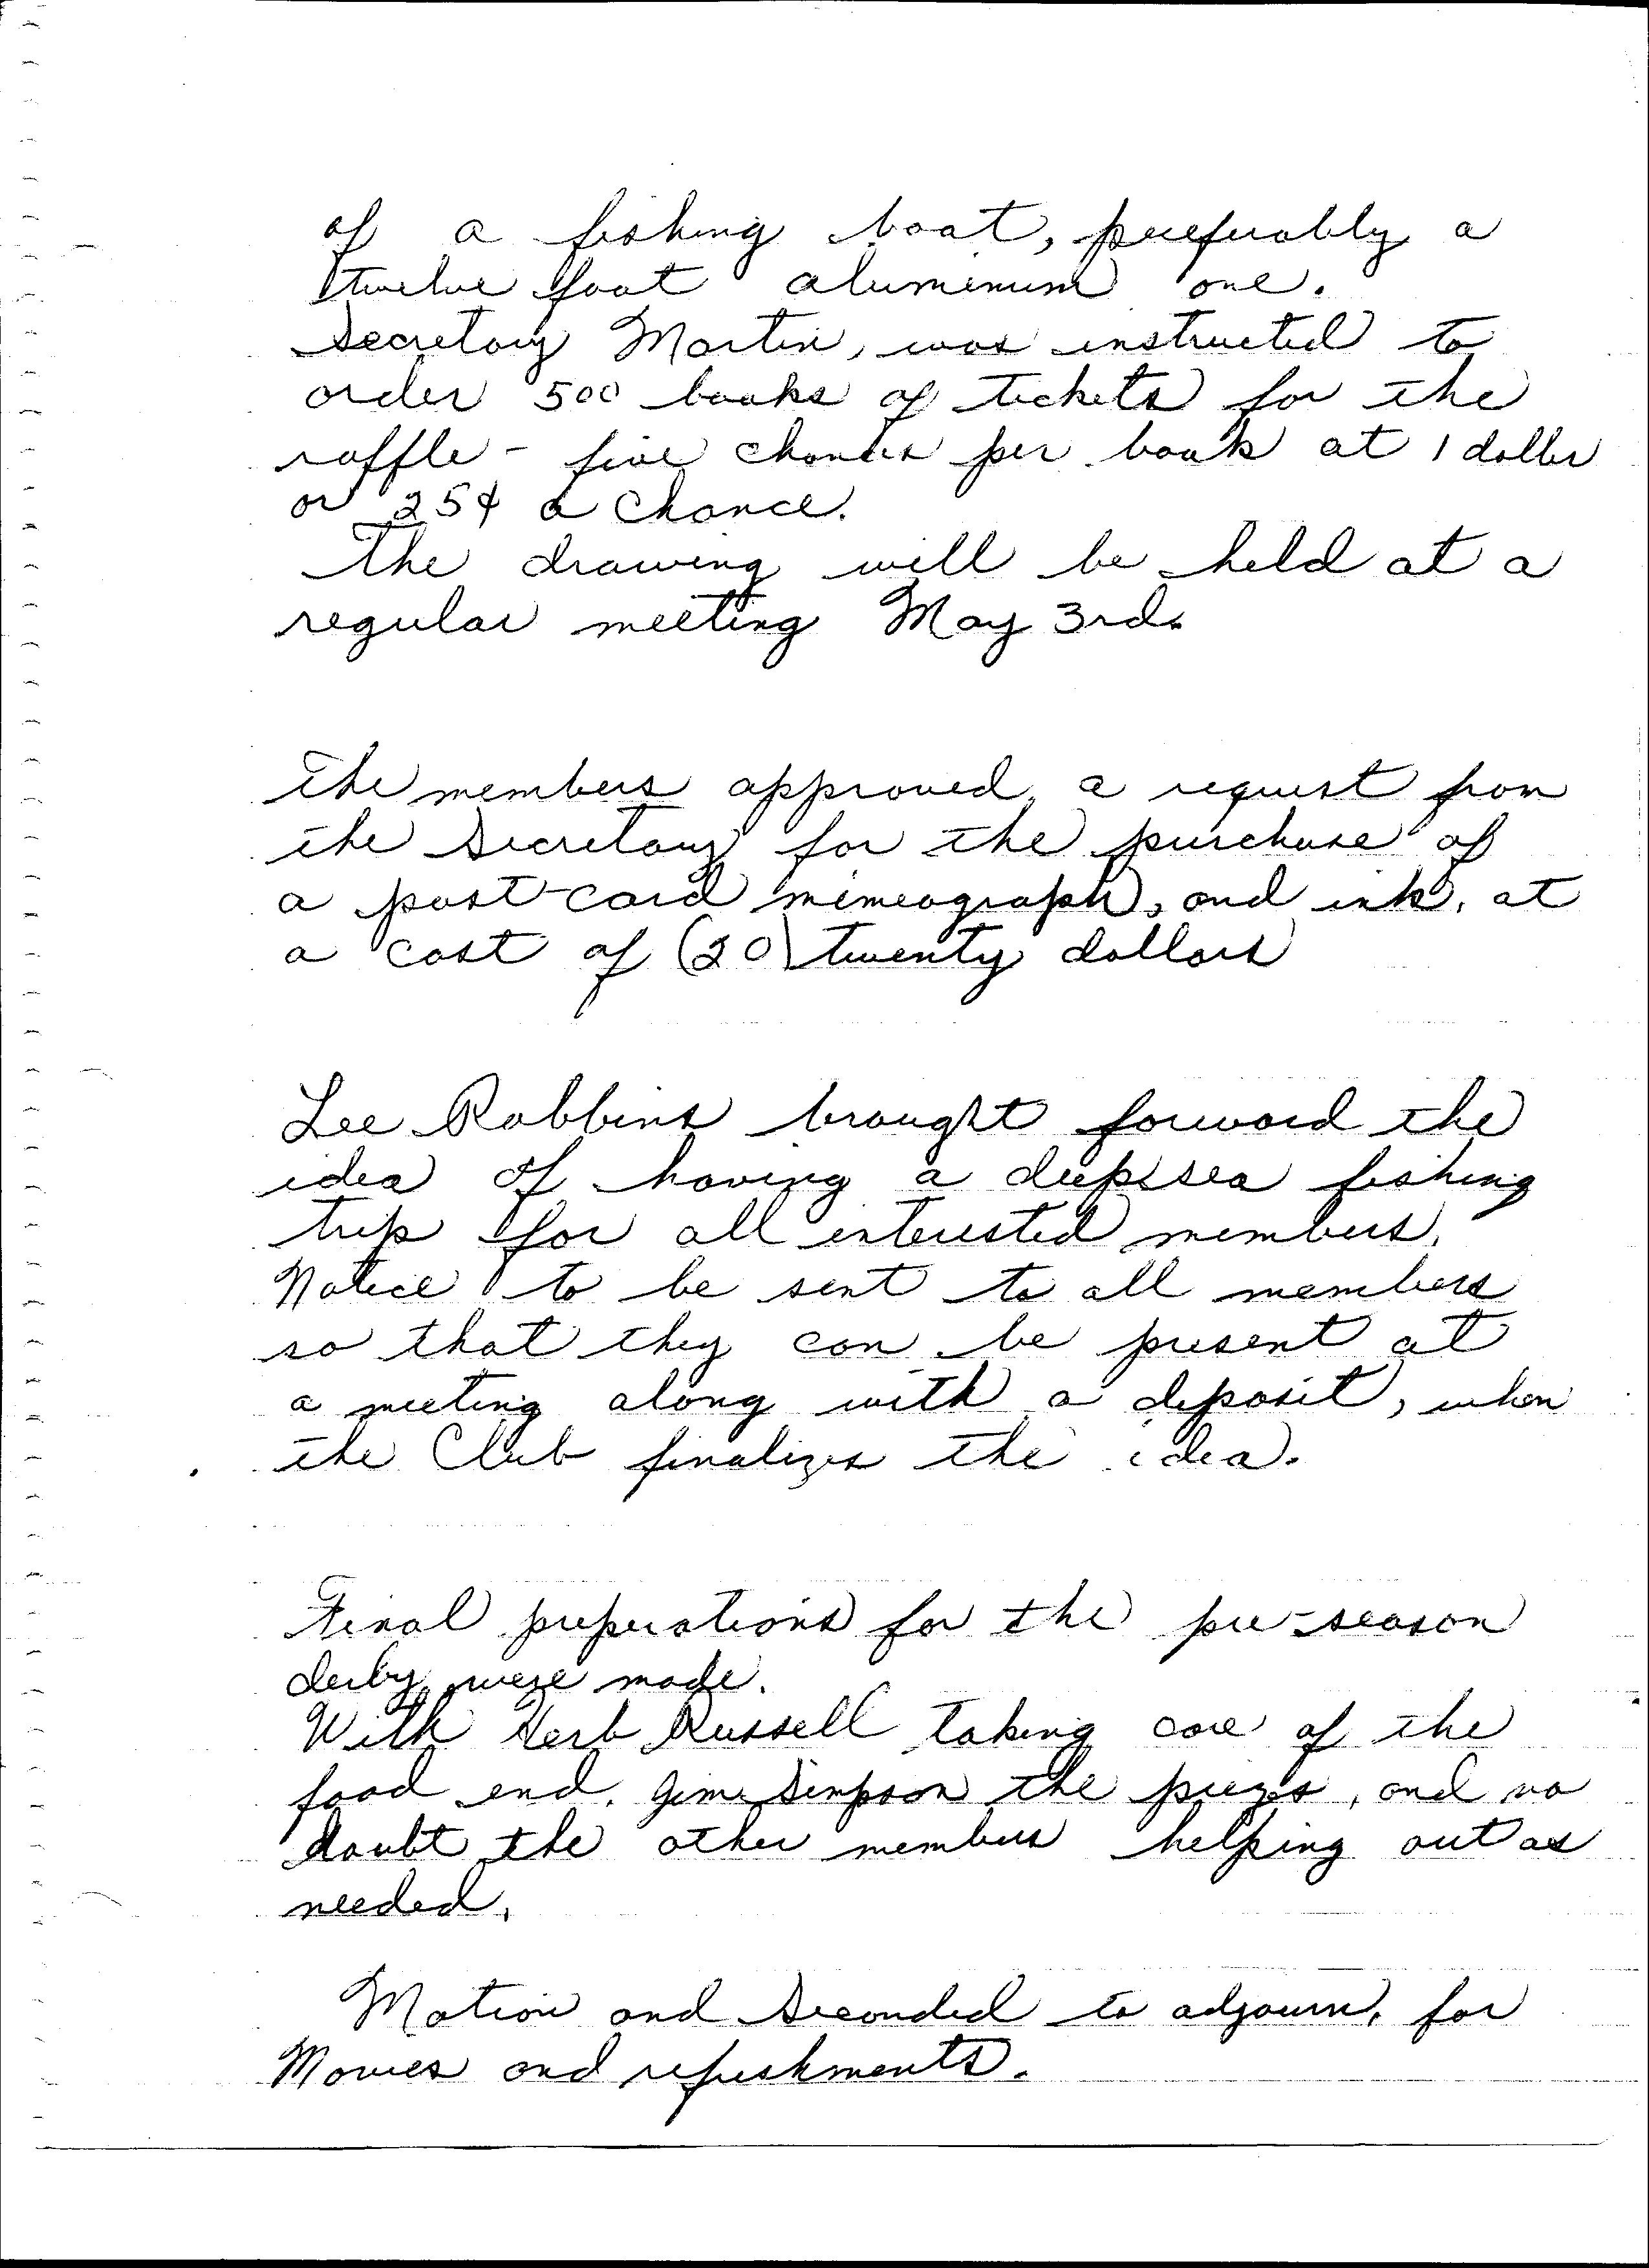 of a fishing boat, preferably a
twelve foot aluminum one.
Secretary Martin, was instructed to
order 500 books of tickets for the
raffle - five chances per book at 1 doller
or 25¢ a chance.
The drawing will be held at a
regular meeting May 3rd.
The members approved, a request from
the Secretary for the purchase of
a post-card mimeograph, and ink, at
a cost of (20) twenty dollars
Lee Robbins brought forword the
idea of having a deepsea fishing
trip for all interested members.
Notice to be sent to all members
so that they can be present at
a meeting along with a deposit, when
the Club finalizes the idea.
Final preperations for the pre-season
derby were made.
With Herb Russell taking care of the
food end. Jim Simpson the prizes, and no
doubt the other members helping out as
needed.
Motion and Seconded to adjourn, for
Movies and refreshments.